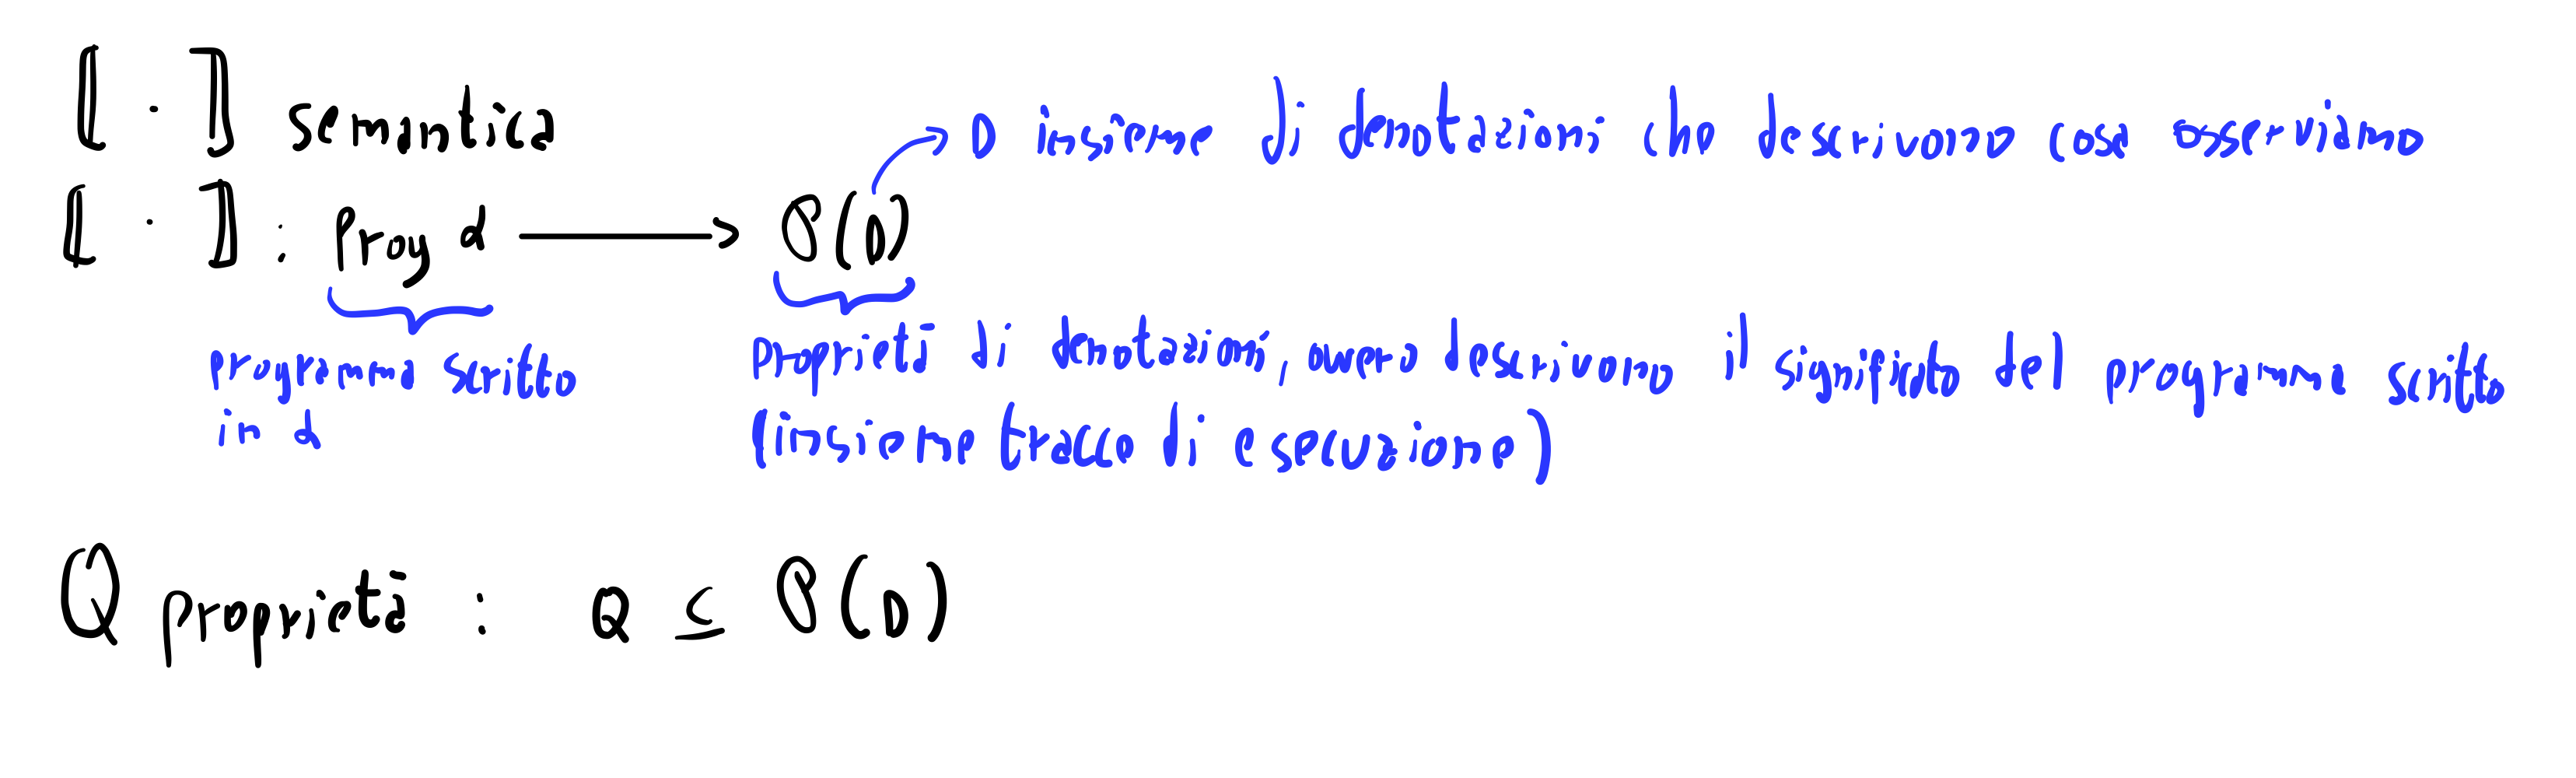 ⟦ · ⟧ semantica
→ D insieme di denotazioni che descrivono cosa osserviamo
⟦ · ⟧ : Prog L ⟶ ℘(D)
programma scritto
in L
proprietà di denotazioni, ovvero descrivono il significato del programma scritto
(insieme tracce di esecuzione)
Q proprietà : Q ⊆ ℘(D)